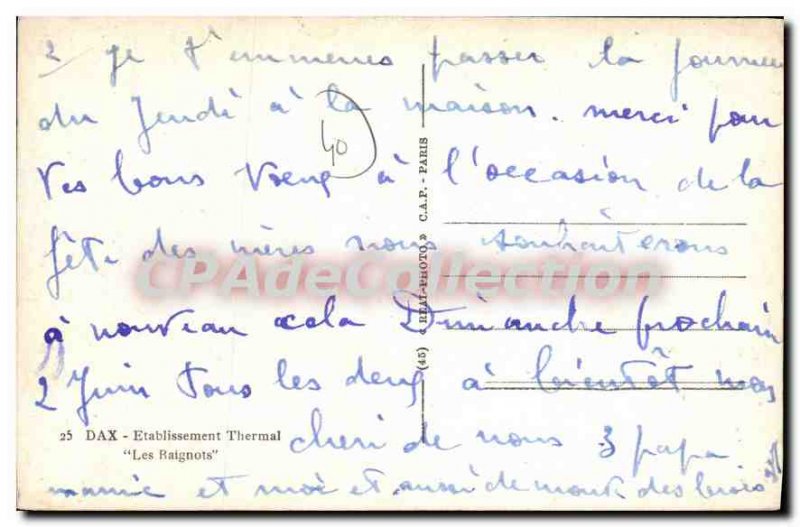 2 je t'emmènes passer la journée
du Jeudi à la maison. merci pour
40
Ves bons voeux à l'occasion de la
fête des mères nous souhaiterons
CPAdeCollection
à nouveau cela Dimanche prochain
2 Juin Tous les deux à bientôt nos
25 DAX - Etablissement Thermal
"Les Baignots"
cheri de nous 3 papa
mamie et moi et aussi de mont des
(45) « REAL-PHOTO » C.A.P. - PARIS